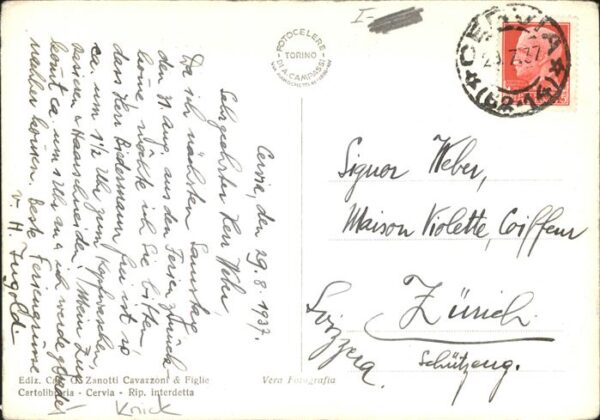 I-
FOTOCELERE
TORINO
DI A. CAMPASSI
CERVIA
Cervia, den 29.8.1937.
Sehrgeehrter Herr Weber,
Da ich nächsten Samstag
den 31. Aug. aus den Ferien zurück
komme, möchte ich Sie bitten,
dass Herr Biedermann frei ist so
ca. um 1 1/2 Uhr zum Kopfwaschen,
rasieren & Haarschneiden. Mein Zug
kommt ca. um 1 Uhr an & ich werde
machen können. Beste Feriengrüsse
v. H. Ingold.
Signor Weber,
Maison Violette, Coiffeur
Zürich.
Schützeng.
Svizzera.
Ediz. Zanotti Cavazzoni & Figlie
Cartolibreria - Cervia - Rip. interdetta
Vera Fotografia